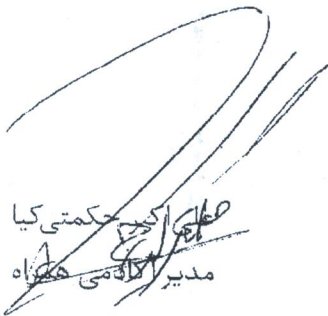 علی اکبر حکمتی‌کیا
مدیر آکادمی همراه